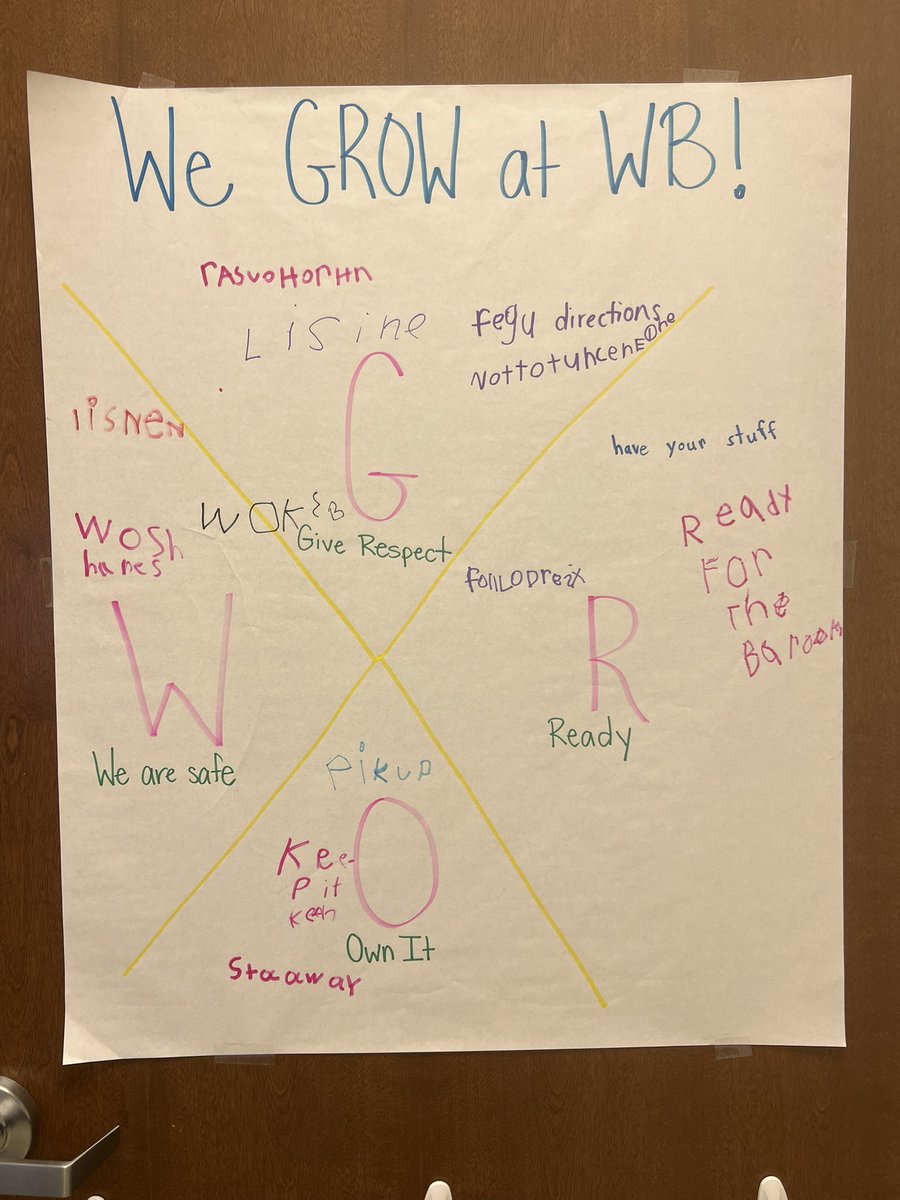 We GROW at WB!
rASvoHorHn
LISine
fegu directions
NottotuhcenE
the
lisNeN
have your stuff
WOK
G
Give Respect
WOSh
hanes
Ready
For
The
BGroom
fonLODreix
W
We are safe
R
Ready
PikuP
O
Kee-
P it
Keen
Own It
Staaway